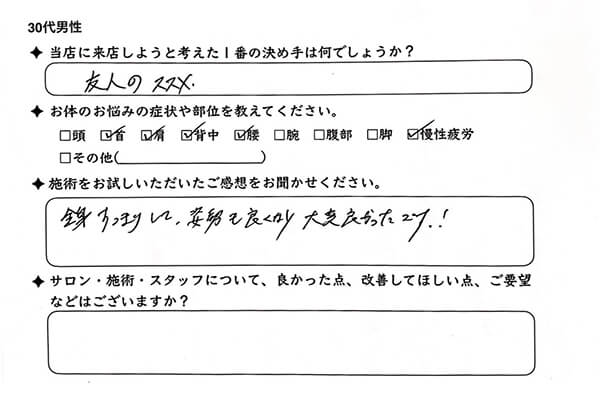 30代男性
✦当店に来店しようと考えた1番の決め手は何でしょうか?
友人のススメ.
✦お体のお悩みの症状や部位を教えてください。
□頭 ☑首 ☑肩 ☑背中 ☑腰 □腕 □腹部 □脚 ☑慢性疲労
□その他( )
✦施術をお試しいただいたご感想をお聞かせください。
全身すっきりして、姿勢も良くなり 大変良かったです!
✦サロン・施術・スタッフについて、良かった点、改善してほしい点、ご要望
などはございますか?